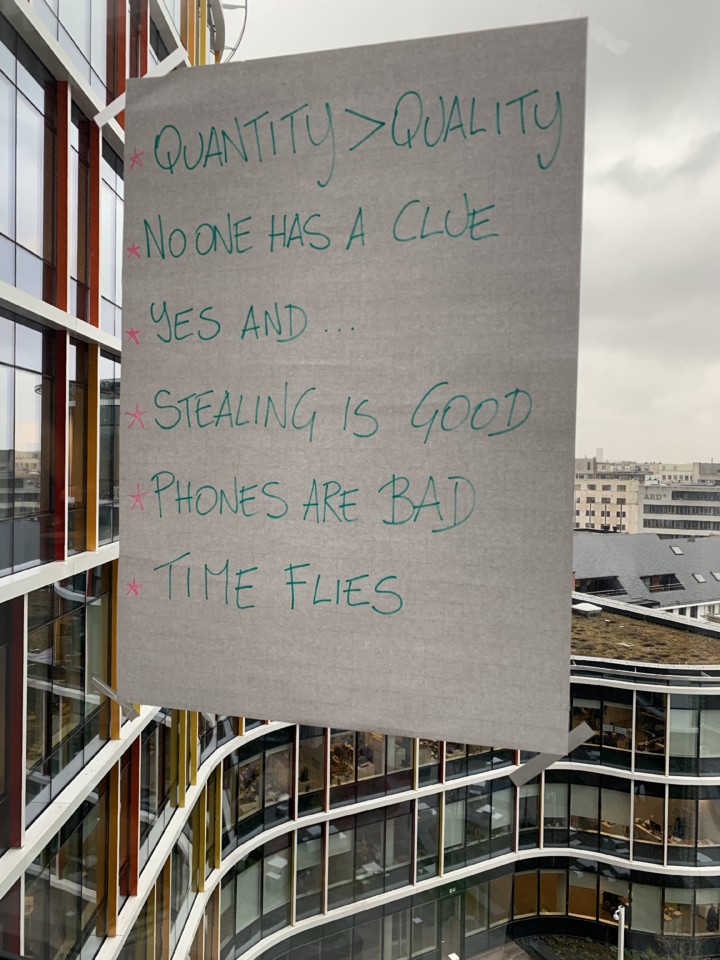 * QUANTITY > QUALITY
* NO ONE HAS A CLUE
* YES AND ...
* STEALING IS GOOD
* PHONES ARE BAD
* TIME FLIES